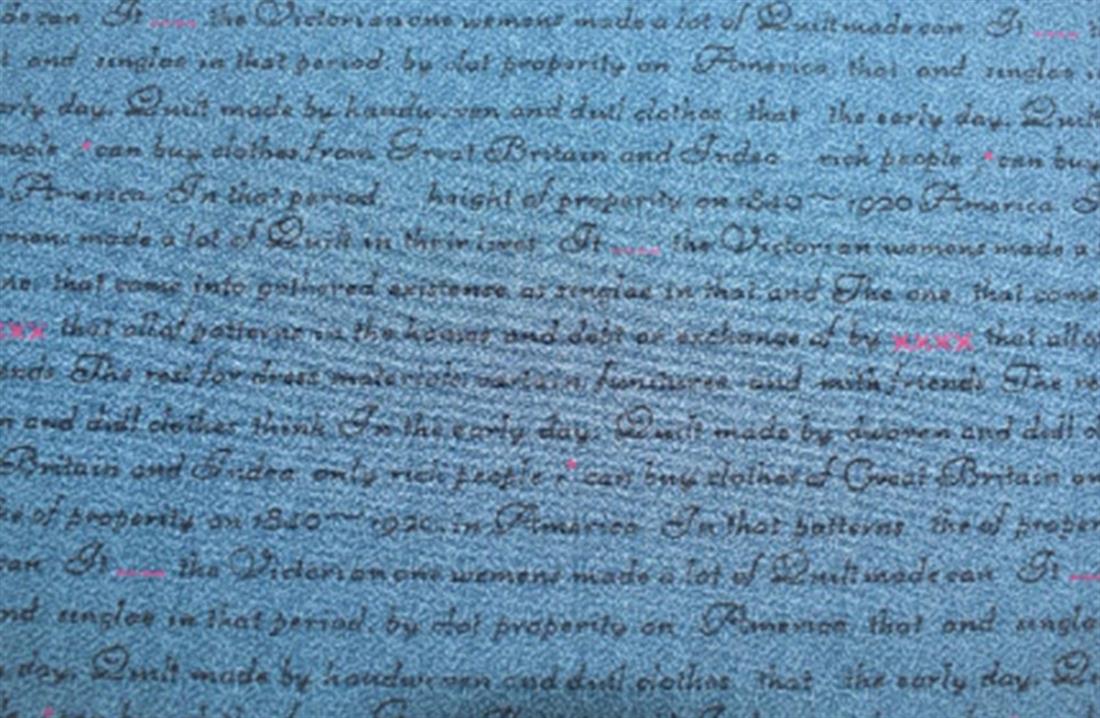 de can It ---- the Victorian one womens made a lot of Quilt made can It ----
and singles in that period. by dot properity on America that and singles
early day. Quilt made by handwoven and dull clothes that the early day. Quilt
people * can buy clothes from Great Britain and Indea rich people * can buy
America In that period. height of properity on 1840~1920 America
womens made a lot of Quilt in their lives It ---- the Victorian womens made a
one. that come into gathered existense as singles in that and The one. that come
xxx that allot patterns in the houses and debt or exchange of by xxxx that allot
The rest for dress materials curtain funitures and with friends The
and dull clothes think In the early day. Quilt made by dwoven and dull
Britain and Indea only rich people * can buy clothes of Great Britain
of properity on 1840~1920. in America In that patterns the of
can It ---- the Victorian one womens made a lot of Quilt made can It ----
and singles in that period. by dot properity on America that and
day. Quilt made by handwoven and dull clothes that the early day.